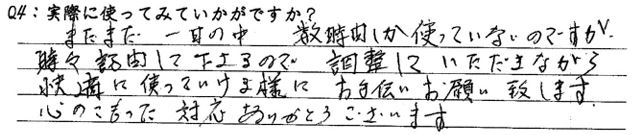 Q4：実際に使ってみていかがですか？
まだまだ 一日の中 数時間しか使っていないのですが、
時々 訪問して下さるので 調整して いただきながら
快適に使っていける様に お手伝いお願い致します。
心のこもった 対応 ありがとうございます